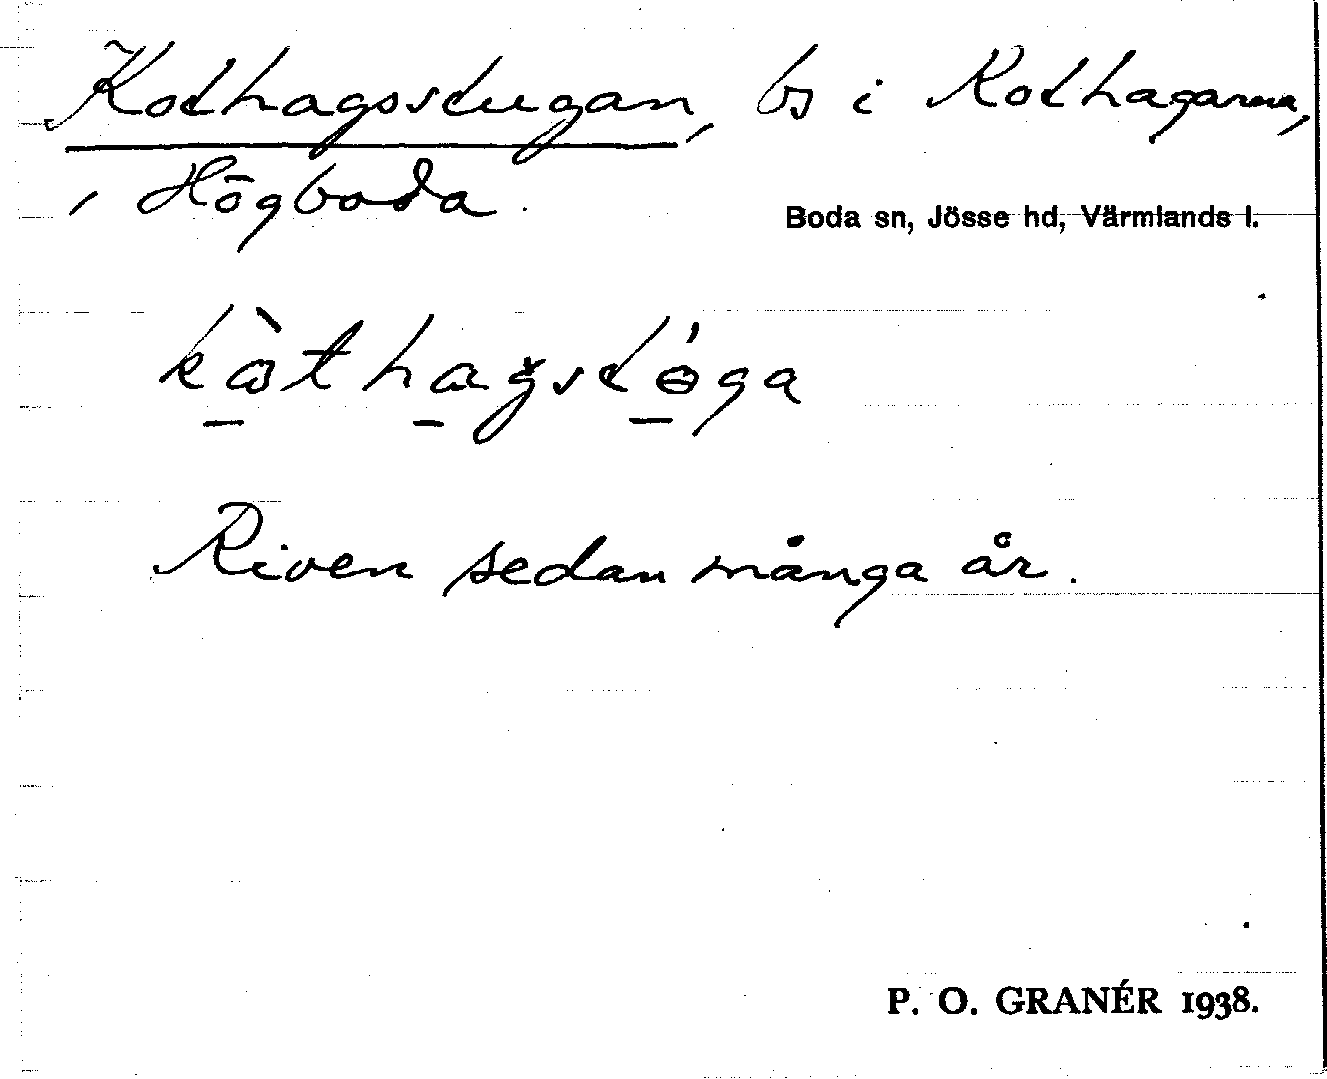 Kothagsstugan, bs i Kothagarna,
i Högboda.
Boda sn, Jösse hd, Värmlands l.
Riven sedan många år.
P. O. GRANÉR 1938.